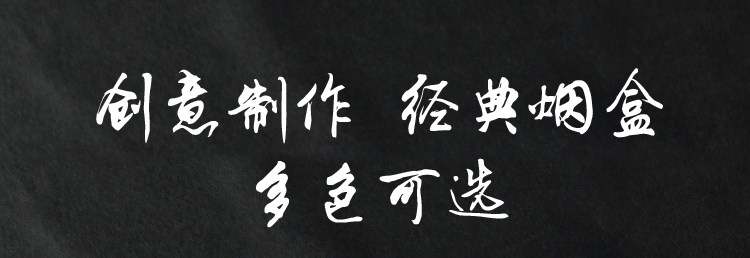 创意制作 经典烟盒
多色可选